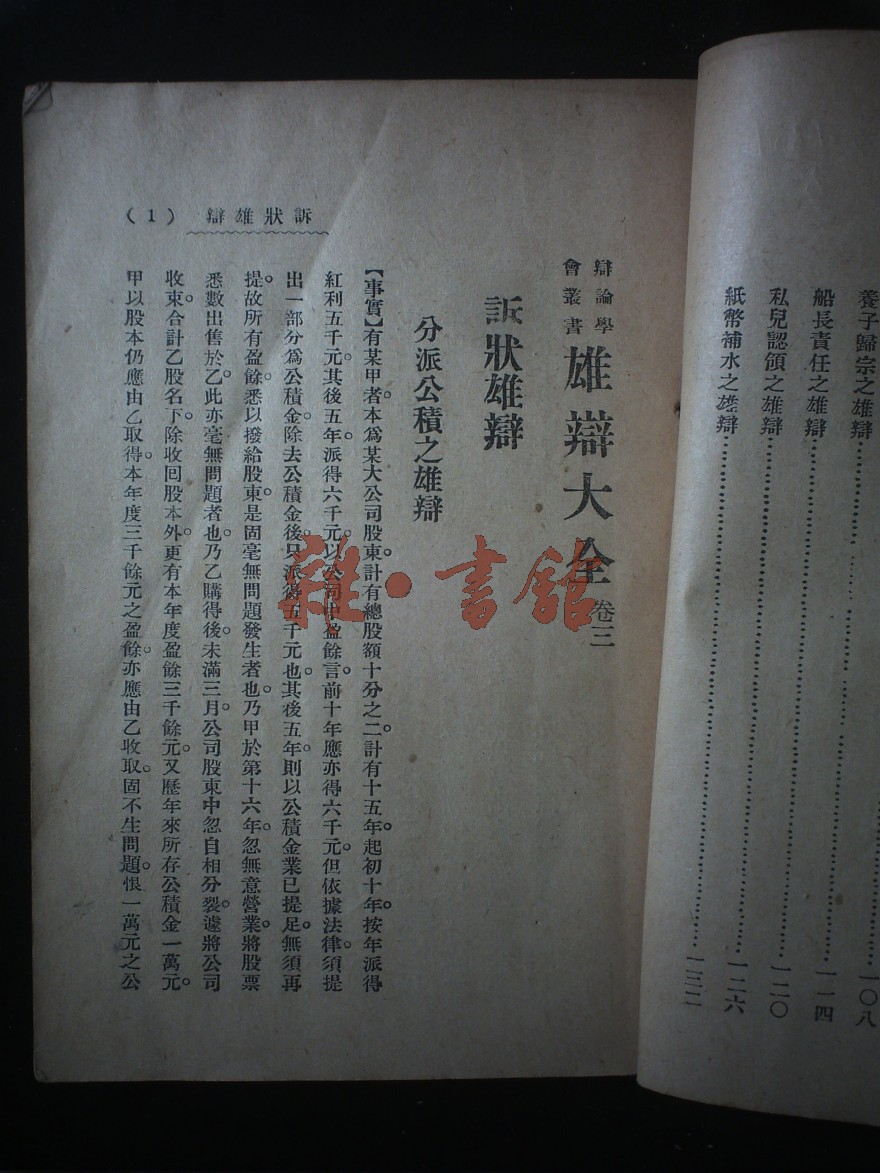 養子歸宗之雄辯…………一〇八
船長責任之雄辯…………一一四
私兒認領之雄辯…………一二〇
紙幣補水之雄辯…………一二六
一三二
辯論學會叢書 雄辯大全 卷三
訴狀雄辯
分派公積之雄辯
【事實】有某甲者。本爲某大公司股東。計有總股額十分之二。計有十五年。起初十年。按年派得
紅利五千元。其後五年。派得六千元。以公司中盈餘言。前十年應亦得六千元。但依據法律。須提
出一部分爲公積金。除去公積金後。只派得五千元也。其後五年。則以公積金業已提足。無須再
提。故所有盈餘。悉以撥給股東。是固毫無問題發生者也。乃甲於第十六年。忽無意營業。將股票
悉數出售於乙。此亦毫無問題者也。乃乙購得後。未滿三月。公司股東中忽自相分裂。遽將公司
收束。合計乙股名下。除收回股本外。更有本年度盈餘三千餘元。又歷年來所存公積金一萬元。
甲以股本仍應由乙取得。本年度三千餘元之盈餘。亦應由乙收取。固不生問題。恨一萬元之公
訴狀雄辯 (1)
雜·書館